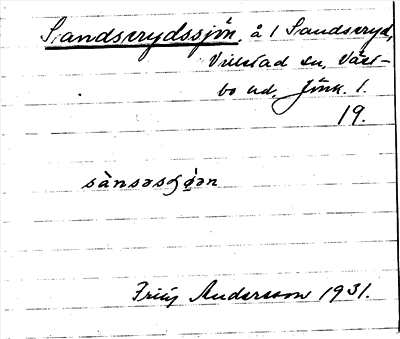 Sandserydssjön, å 1 Sandseryd,
Vrigstad sn, Väst-
bo hd, Jönk. l.
19.
sànsəsʃǿən
Frity Anderson 1931.